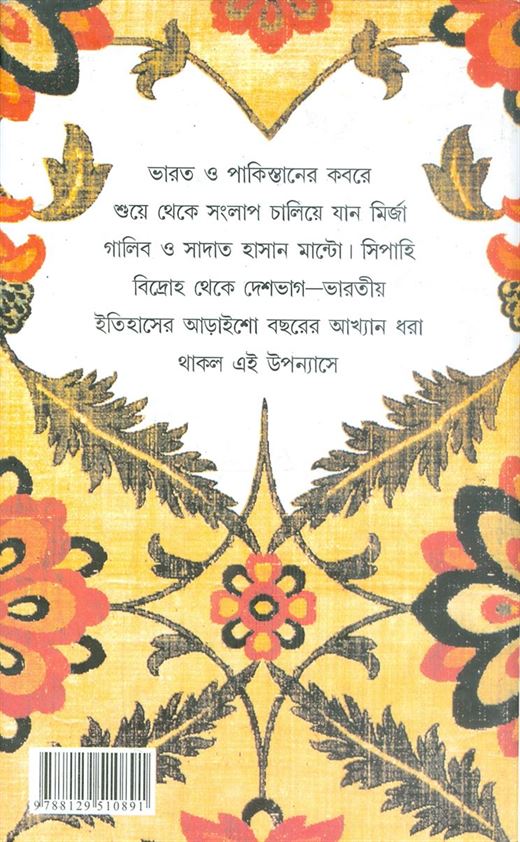 ভারত ও পাকিস্তানের কবরে
শুয়ে থেকে সংলাপ চালিয়ে যান মির্জা
গালিব ও সাদাত হাসান মান্টো। সিপাহি
বিদ্রোহ থেকে দেশভাগ—ভারতীয়
ইতিহাসের আড়াইশো বছরের আখ্যান ধরা
থাকল এই উপন্যাসে
9788129510891